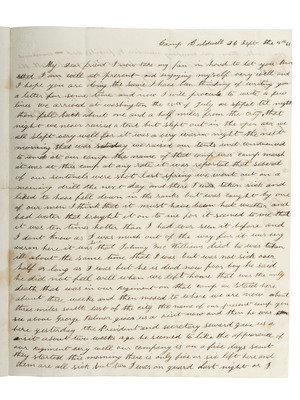 Camp Caldwell 26 Sept the 4th
My dear friend I now take my pen in hand to let you know
I am well at present and enjoying myself very well and
I hope you are doing the same I have been thinking of writing you
a letter for some time and now I will proceed to write a few
lines we arrived at washington the way of July
then fell back about one and a half miles from the city that
night we never raised a tent but slept out in the open air we
all slept very well for it was a very warm night the next
morning that was sunday we raised our tents and commenced
to our camp the name of that camp was camp meridian
at one at this camp at any rate it was reported that several
of our sentinels were shot last spring we went out on a
morning drill the next day and there I was taken sick and
liked to have fell down in the ranks but was caught by one
of our men I think that it must have been hot weather and
bad water that brought it on to me for it seemed to me that it
was ten times hotter than I had ever seen it before and
I don't know as I was much out of the way for it was very
warm here it was that Johnny Mc Williams died he was taken
all about the same time that I was but was not sick over
half as long as I was but he is dead now poor boy he said
he did not feel well when we left home that was the only
death that was in our regiment on that camp we staid here
about three weeks and then moved to where we are now about
three miles south east of the city the name of our present camp you
see above George Palmer gave us a visit now and then he was
here yesterday the President and secretary seward gave us a
visit about two weeks ago he seemed to like the appearance of
our regiment very well our company is on a five days scout
they started this morning there is only five or six left here and
them are all sick but me I was on guard last night or I